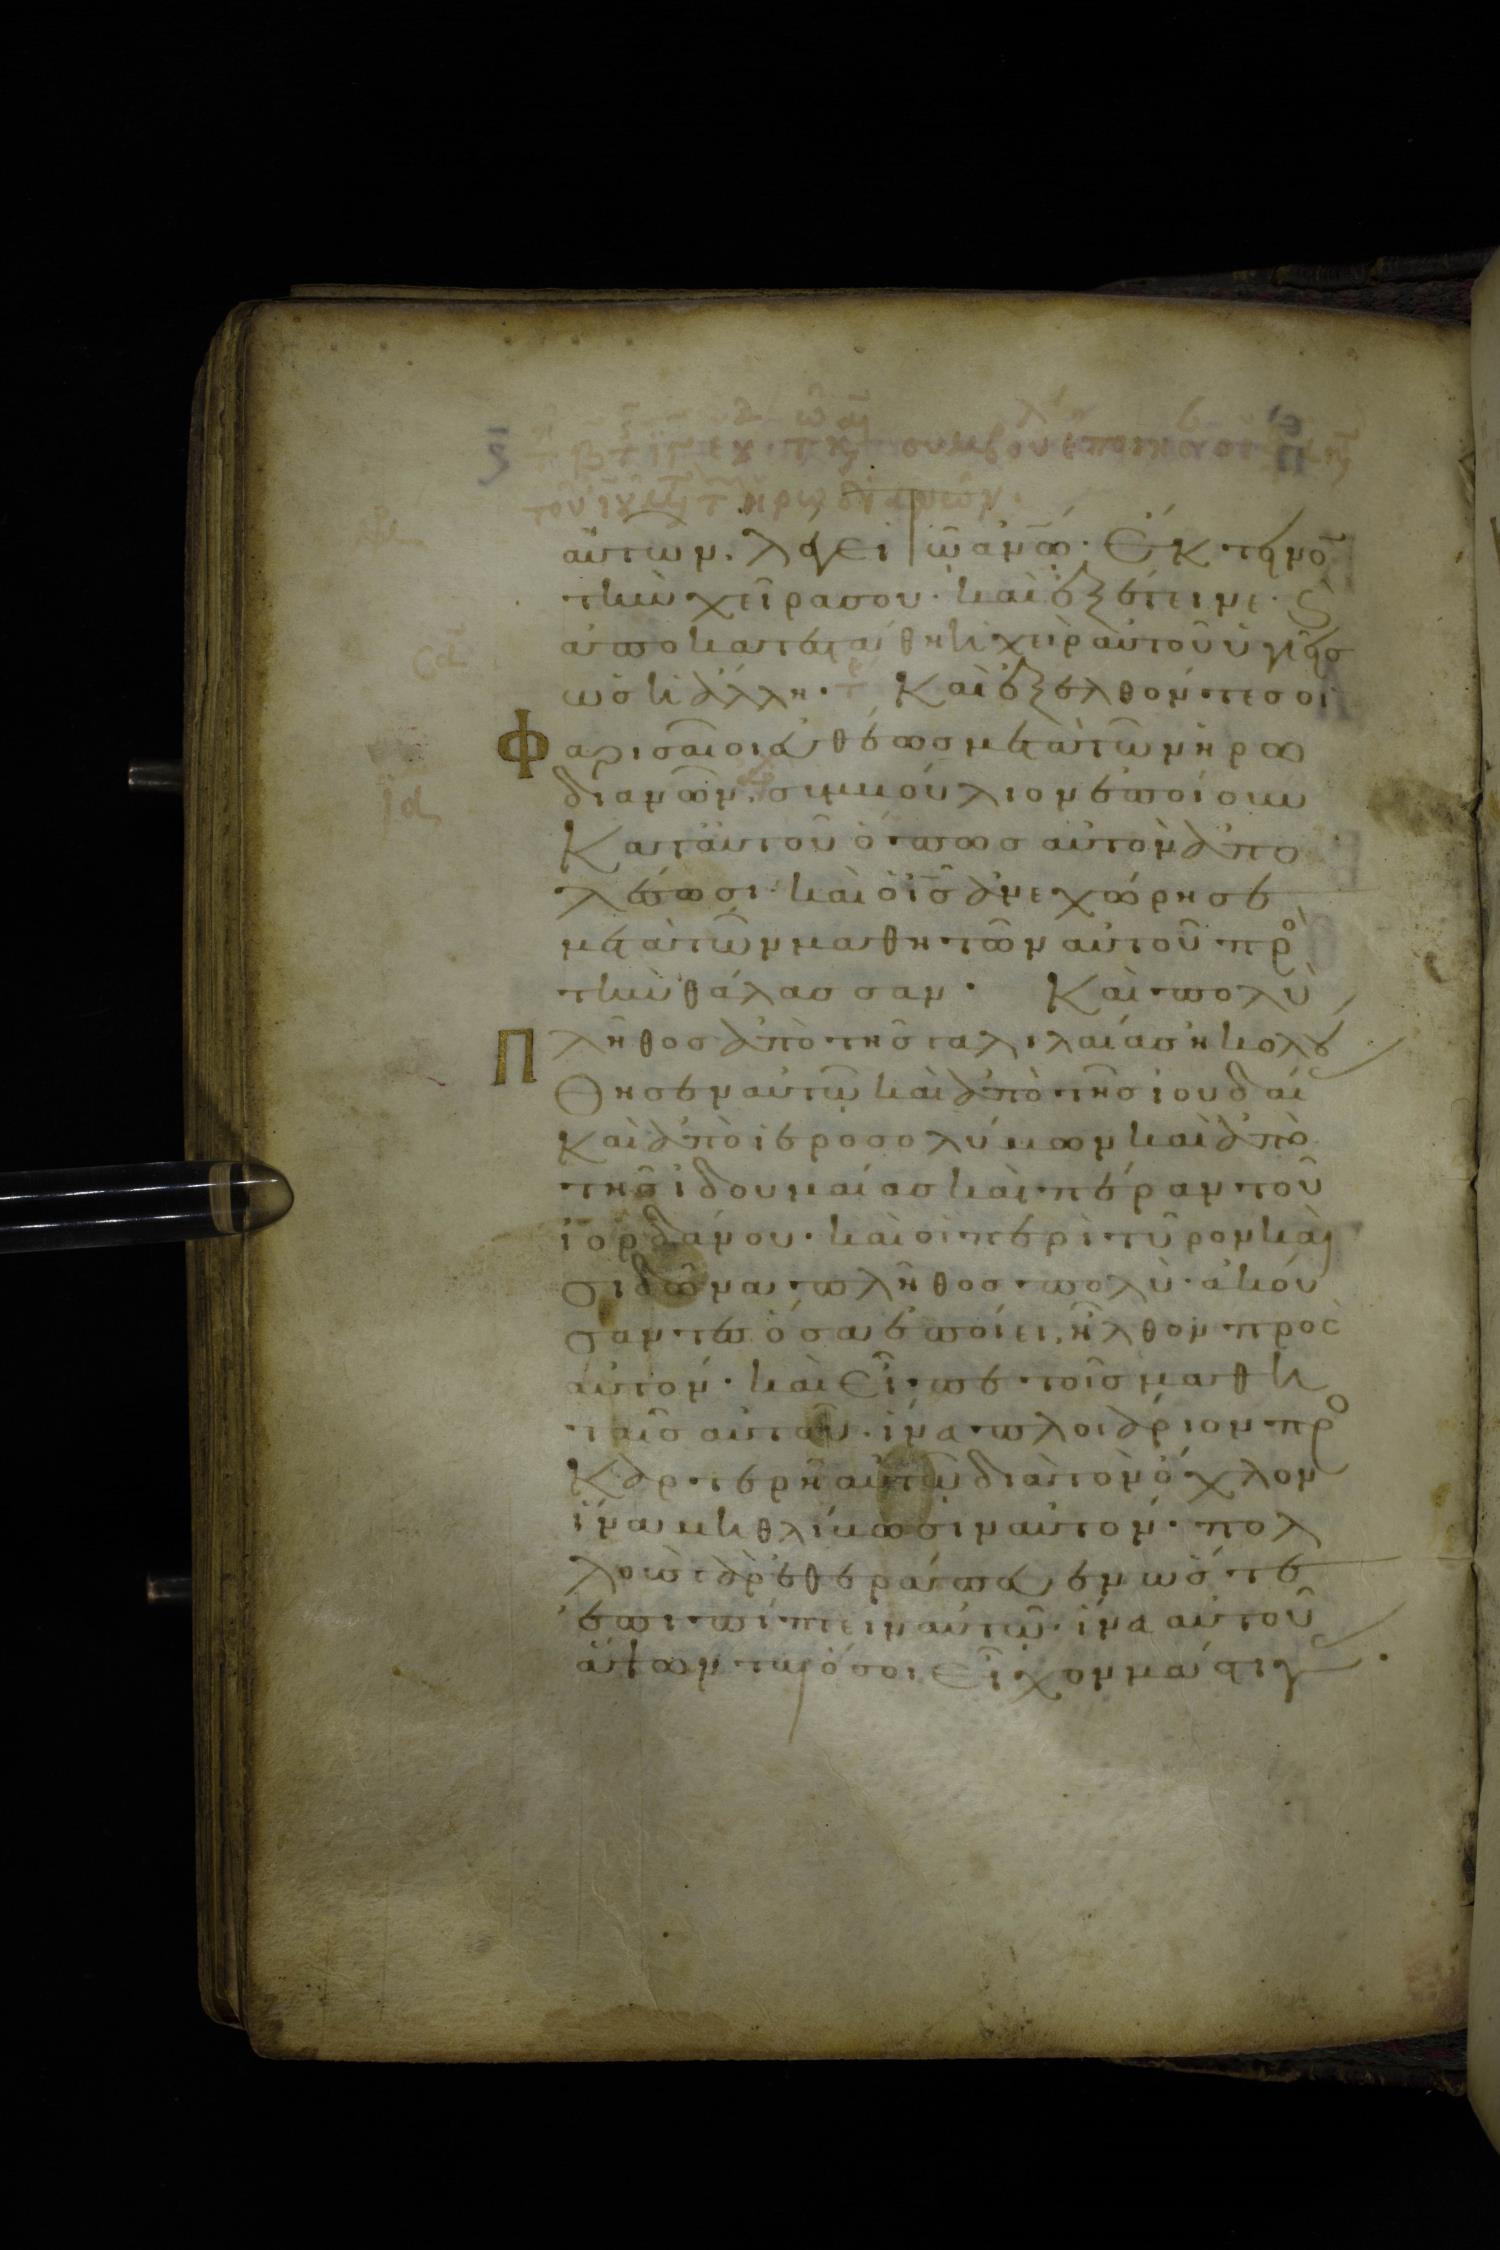 αὐτῶν. λέγει τῷ ἀνῷ. Ἔκτεινο
τὴν χεῖρα σου. καὶ ἐξέτεινε. ϛ
ἀποκατεστάθη ἡ χεὶρ αὐτοῦ ὑγιὴς
ὡς ἡ ἄλλη. Καὶ ἐξελθόντες οἱ
Φαρισαῖοι εὐθέως μετὰ τῶν ἡρω
διανῶν. συμβούλιον ἐποίουν
Κατ αὐτοῦ ὅπως αὐτὸν ἀπο
λέσωσι. καὶ ὁ ις ἀνεχώρησε
μετὰ τῶν μαθητῶν αὐτοῦ πρὸ
τὴν θάλασσαν. Καὶ πολὺ
Πλῆθος ἀπὸ τῆς γαλιλαίας ἠκολού
Θησεν αὐτῷ καὶ ἀπὸ τῆς ἰουδαί
Καὶ ἀπὸ ἱεροσολύμων καὶ ἀπὸ
τῆς ἰδουμαίας καὶ πέραν τοῦ
ἰορδάνου. καὶ οἱ περὶ τῦρον καὶ
σιδῶνα πλῆθος πολὺ. ἀκού
σαντες ὅσα ἐποίει, ἦλθον πρὸς
αὐτόν. καὶ εἶπε τοῖς μαθη
ταῖς αὐτοῦ. ἵνα πλοιάριον προ
Καρτερῇ αὐτῷ διὰ τὸν ὄχλον
ἵνα μὴ θλίβωσιν αὐτόν. πολ
λοὺς γὰρ ἐθεράπευσεν ὥστε
ἐπιπίπτειν αὐτῷ. ἵνα αὐτοῦ
ἅψωνται ὅσοι εἶχον μάστιγ